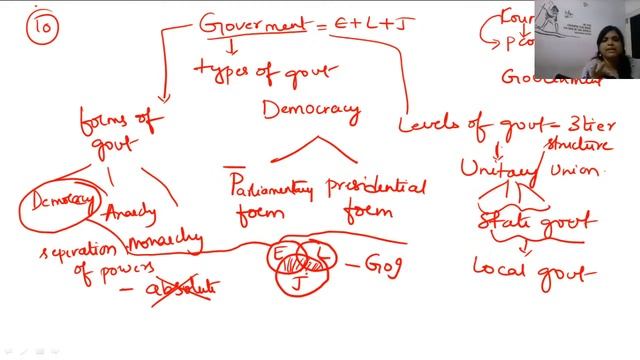 10
Goverment = E + L + J
types of govt
Democracy
Parliamentary form
presidential form
forms of govt
Democracy
Anarchy
Monarchy
seperation of powers
- absolute
E L J
- Gog
Levels of govt = 3 tier structure
Unitary Union.
State govt
Local govt